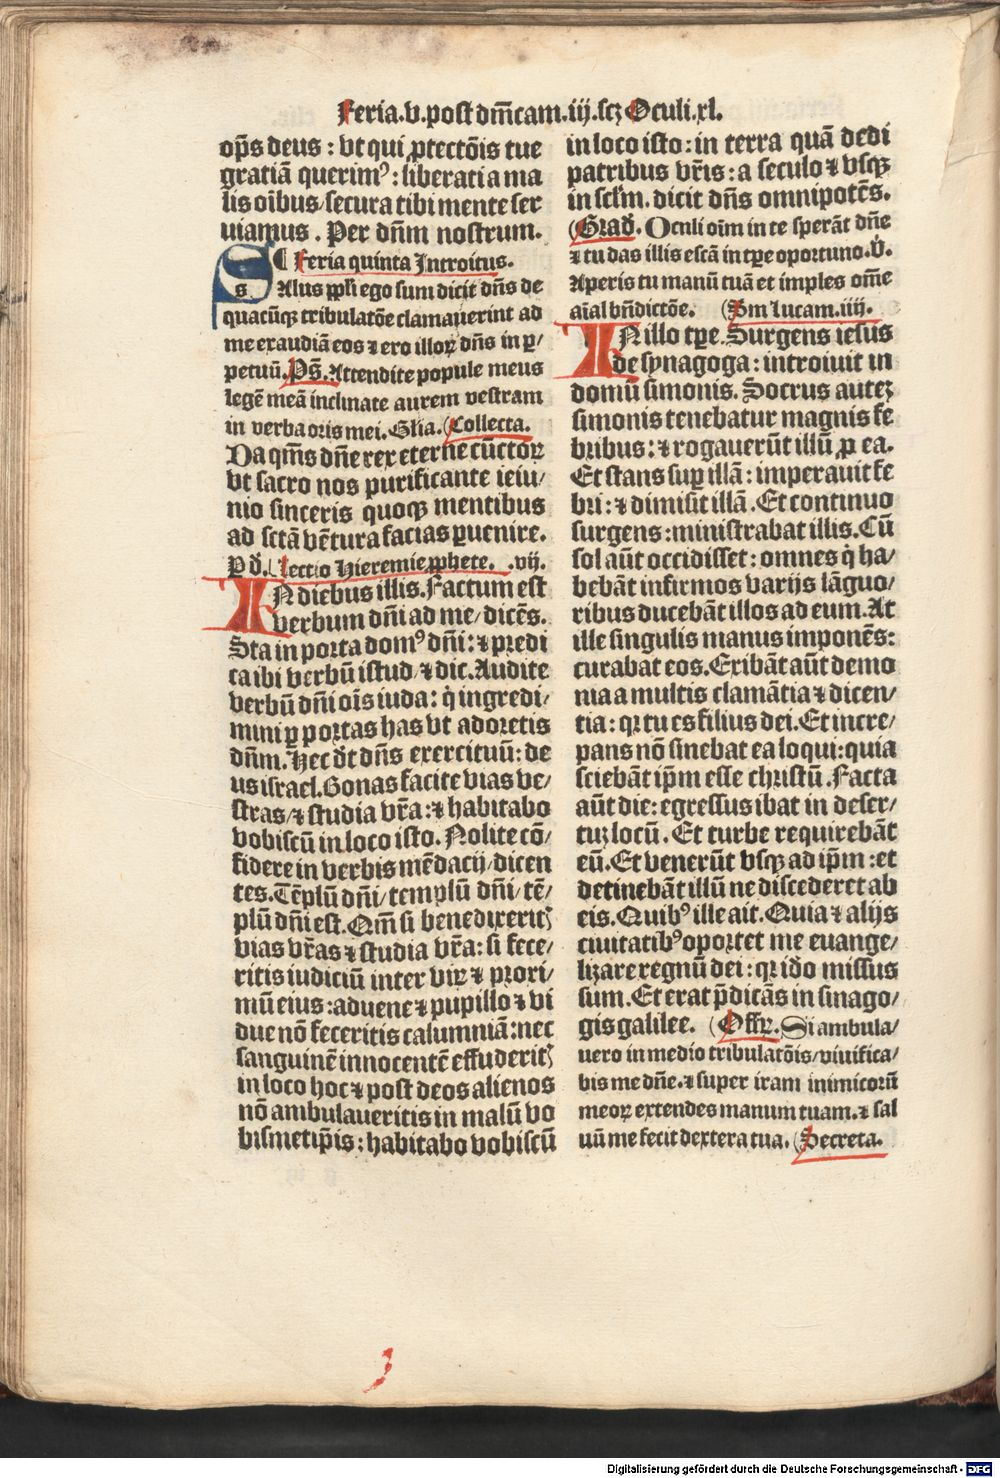 Feria.v.post dm̄cam.iij.scꝫ Oculi.xl.
op̄s deus : vt qui ꝓtectōis tue
gratiā querimꝰ : liberati a ma
lis oībus/secura tibi mente ser
uiamus . Per dn̄m nostrum.
¶ Feria quinta Introitus.
sAlus ppl̄i ego sum dicit dn̄s de
quacūqꝫ tribulatōe clamauerint ad
me exaudiā eos ⁊ ero illoꝝ dn̄s in ꝑ/
petuū. Ps̄. Attendite popule meus
legē meā inclinate aurem vestram
in verba oris mei. Gl̄ia. (Collecta.
Da qm̄s dn̄e rex eterne cūctoꝝ
vt sacro nos purificante ieiu/
nio sinceris quoqꝫ mentibus
ad sctā vētura facias ꝑuenire.
P d̄. (Lectio Hieremie ꝓphete. .vij.
IN diebus illis. Factum est
verbum dn̄i ad me/ dicēs.
Sta in porta domꝰ dn̄i : ⁊ predi
ca ibi verbū istud/ ⁊ dic. Audite
verbū dn̄i oīs iuda : q̇ ingredi/
mini ꝑ portas has vt adoretis
dn̄m. Hec dt̄ dn̄s exercituū : de
us israel. Bonas facite vias ve/
stras/ ⁊ studia vr̄a : ⁊ habitabo
vobiscū in loco isto. Nolite cō/
fidere in verbis mēdacij/ dicen
tes. Tēplū dn̄i/ templū dn̄i/ tē/
plū dn̄i est. Qm̄ si benedixeritꝭ
vias vr̄as ⁊ studia vr̄a : si fece/
ritis iudiciū inter virꝝ ⁊ proxi/
mū eius : aduene ⁊ pupillo ⁊ vi
due nō feceritis calumniā : nec
sanguinē innocentē effuderitꝭ
in loco hoc ⁊ post deos alienos
nō ambulaueritis in malū vo
bismetip̄is : habitabo vobiscū
in loco isto : in terra quā dedi
patribus vr̄is : a seculo ⁊ vsqꝫ
in scl̄m. dicit dn̄s omnipotēs.
(Grad̄. Oculi oīm in te sperāt dn̄e
⁊ tu das illis escā in tꝑe oportuno. v̄.
Aperis tu manū tuā et imples om̄e
aīal bn̄dictōe. (Sm̄ Lucam. iiij.
IN illo tꝑe. Surgens iesus
de synagoga : introiuit in
domū simonis. Socrus auteꝫ
simonis tenebatur magnis fe
bribus : ⁊ rogauerūt illū ꝓ ea.
Et stans suꝑ illā : imperauit fe
bri : ⁊ dimisit illā. Et continuo
surgens : ministrabat illis. Cū
sol aūt occidisset : omnes q̇ ha/
bebāt infirmos varijs lāguo/
ribus ducebāt illos ad eum. At
ille singulis manus imponēs :
curabat eos. Exibāt aūt demo
nia a multis clamātia ⁊ dicen/
tia : qꝛ tu es filius dei. Et incre/
pans nō sinebat ea loqui : quia
sciebāt ip̄m esse christū. Facta
aūt die : egressus ibat in deser/
tuꝫ locū . Et turbe requirebāt
eū. Et venerūt vsqꝫ ad ip̄m : et
detinebāt illū ne discederet ab
eis. Quibꝰ ille ait. Quia ⁊ alijs
ciuitatibꝰ oportet me euange/
lizare regnū dei : qꝛ ido missus
sum. Et erat p̄dicās in sinago/
gis galilee. (Offꝝ. Si ambula/
uero in medio tribulatōis/ viuifica/
bis me dn̄e. ⁊ super iram inimicorū
meoꝝ extendes manum tuam. ⁊ sal
uū me fecit dextera tua. (Secreta.
Digitalisierung gefördert durch die Deutsche Forschungsgemeinschaft - DFG